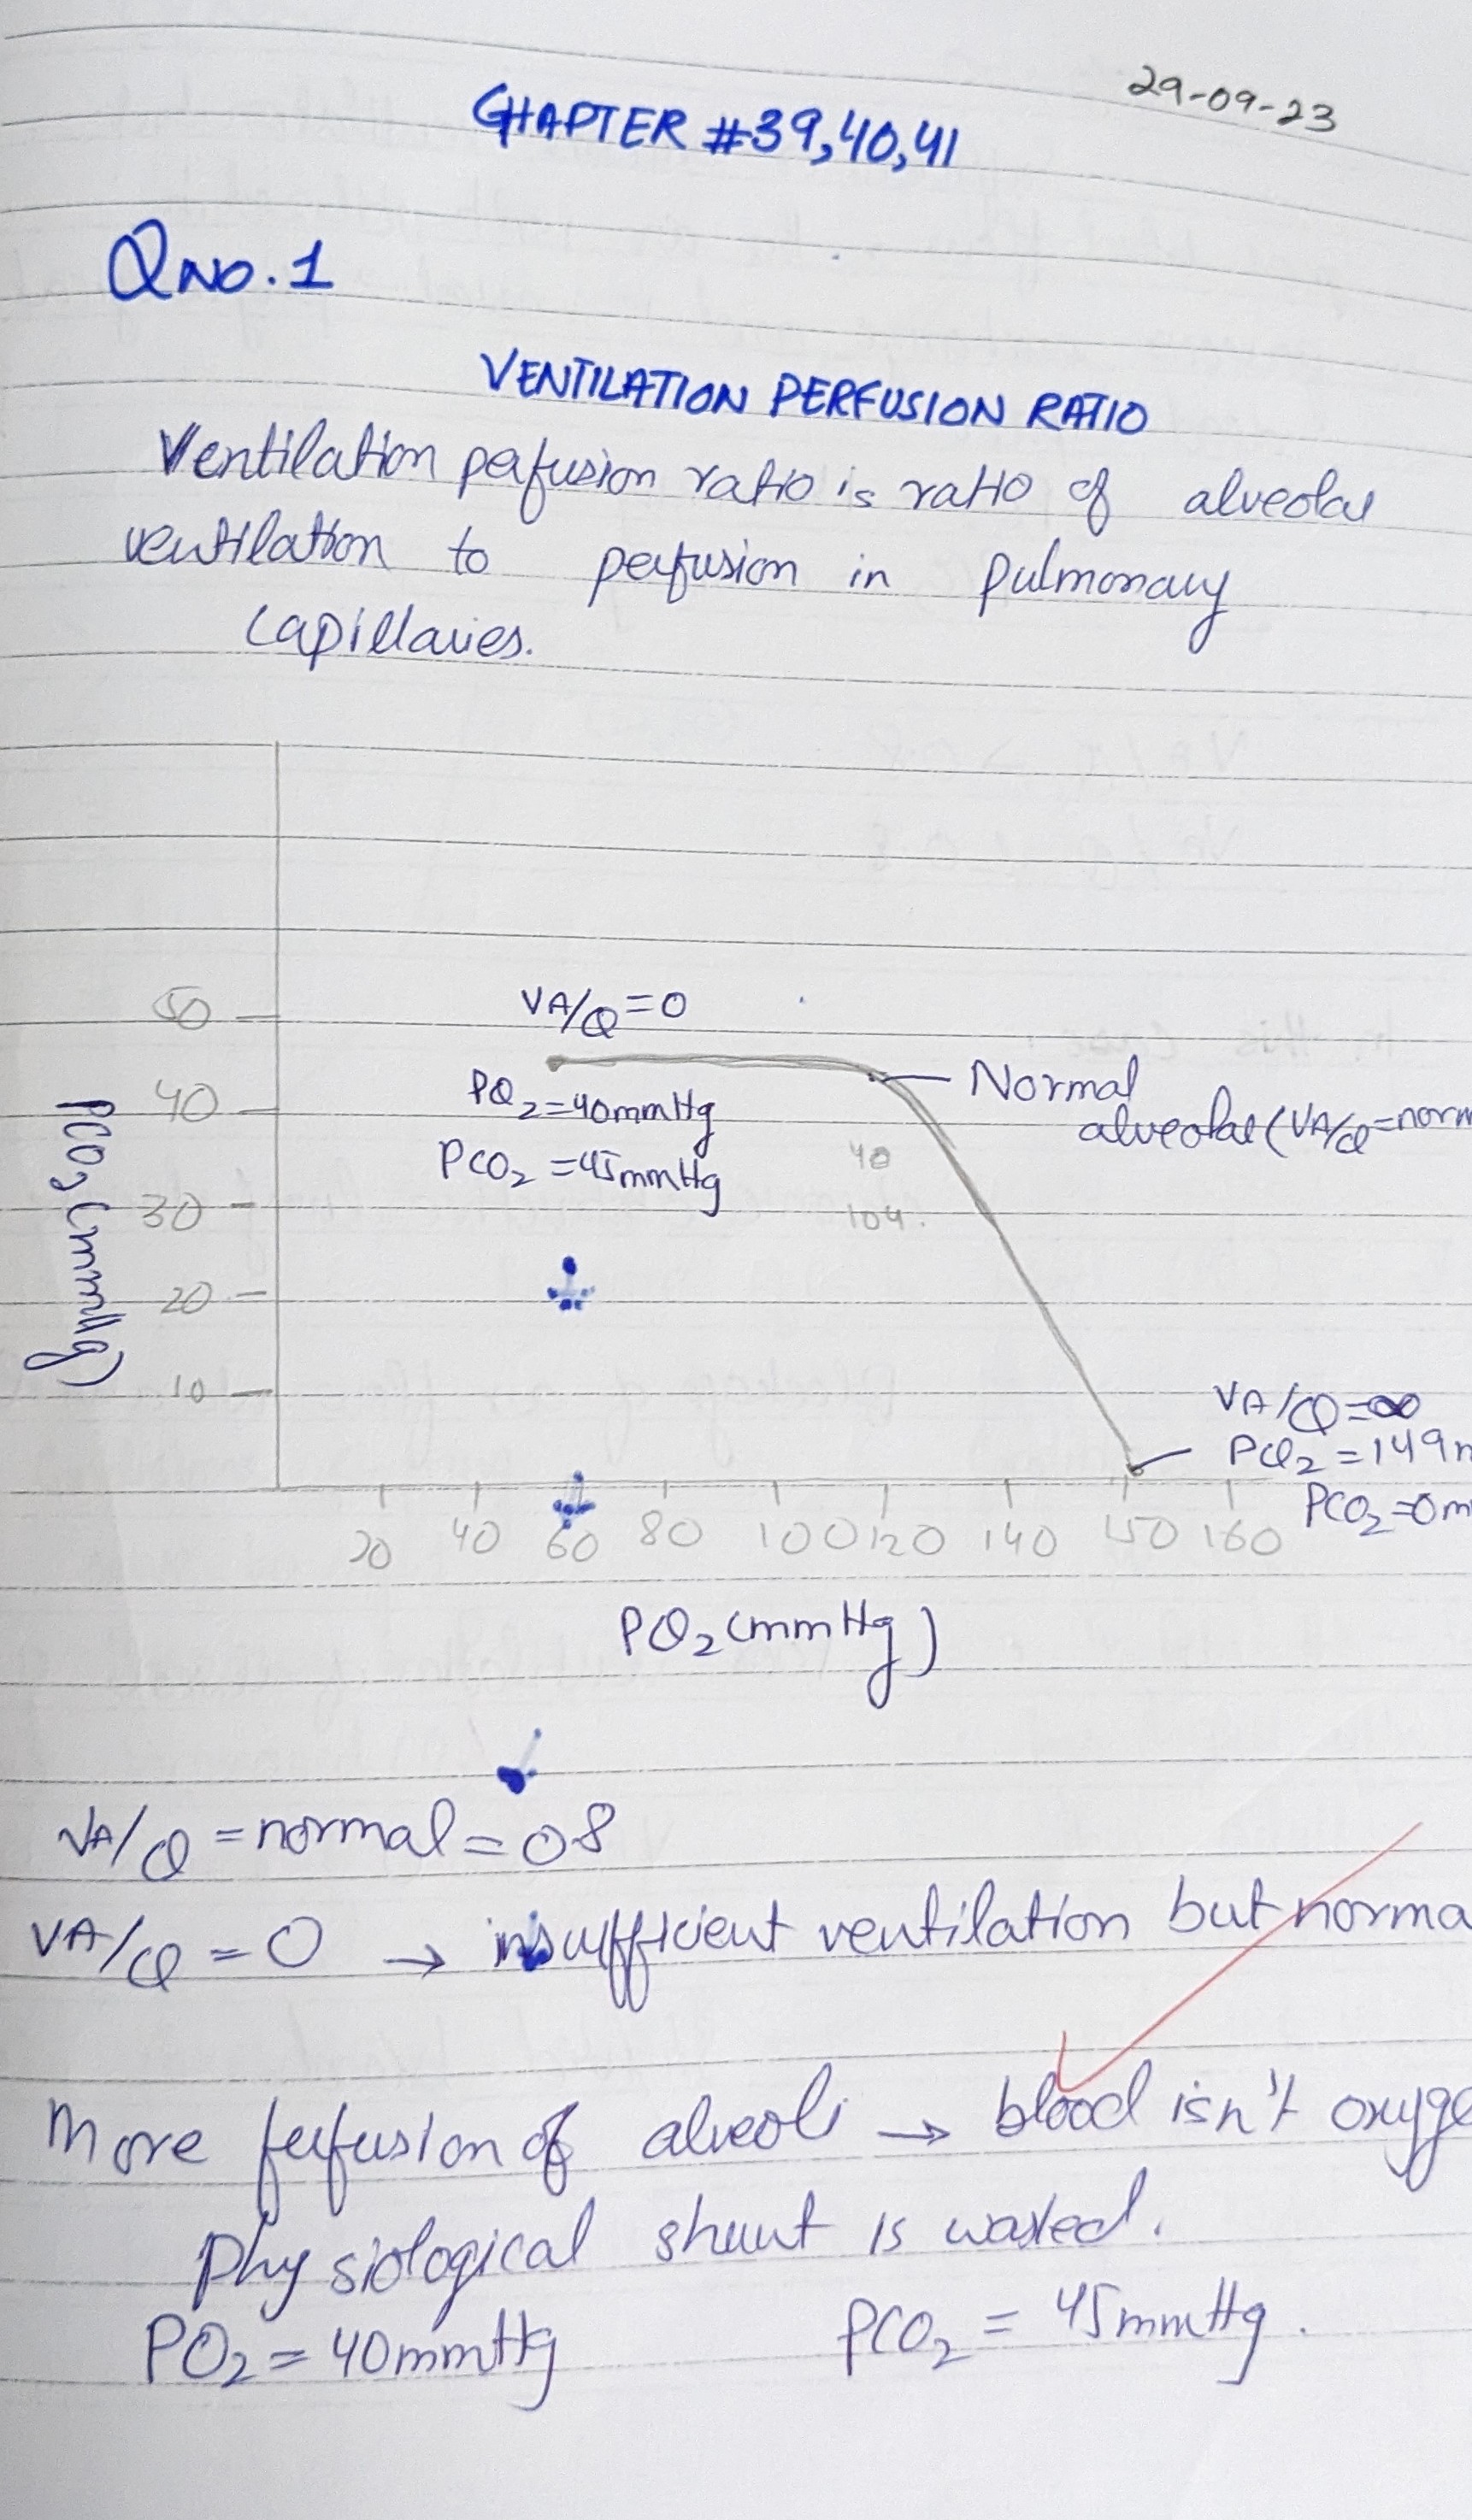 29-09-23
CHAPTER #39,40,41
QNO.1
VENTILATION PERFUSION RATIO
Ventilation perfusion ratio is ratio of alveolar
ventilation to perfusion in pulmonary
capillaries.
50
VA/Q=0
40
PO2=40mmHg
Normal
alveolar (VA/Q=norm
PCO2=45mmHg
40
30
104.
PCO2 (mmHg)
20
10
VA/Q=∞
PO2=149m
PCO2=0m
20 40 60 80 100 120 140 150 160
PO2 (mmHg)
VA/Q = normal = 08
VA/Q = 0 → insufficient ventilation but norma
More perfusion of alveoli → blood isn't oxyge
Physiological shunt is wasted.
PO2 = 40mmHg PCO2 = 45mmHg.